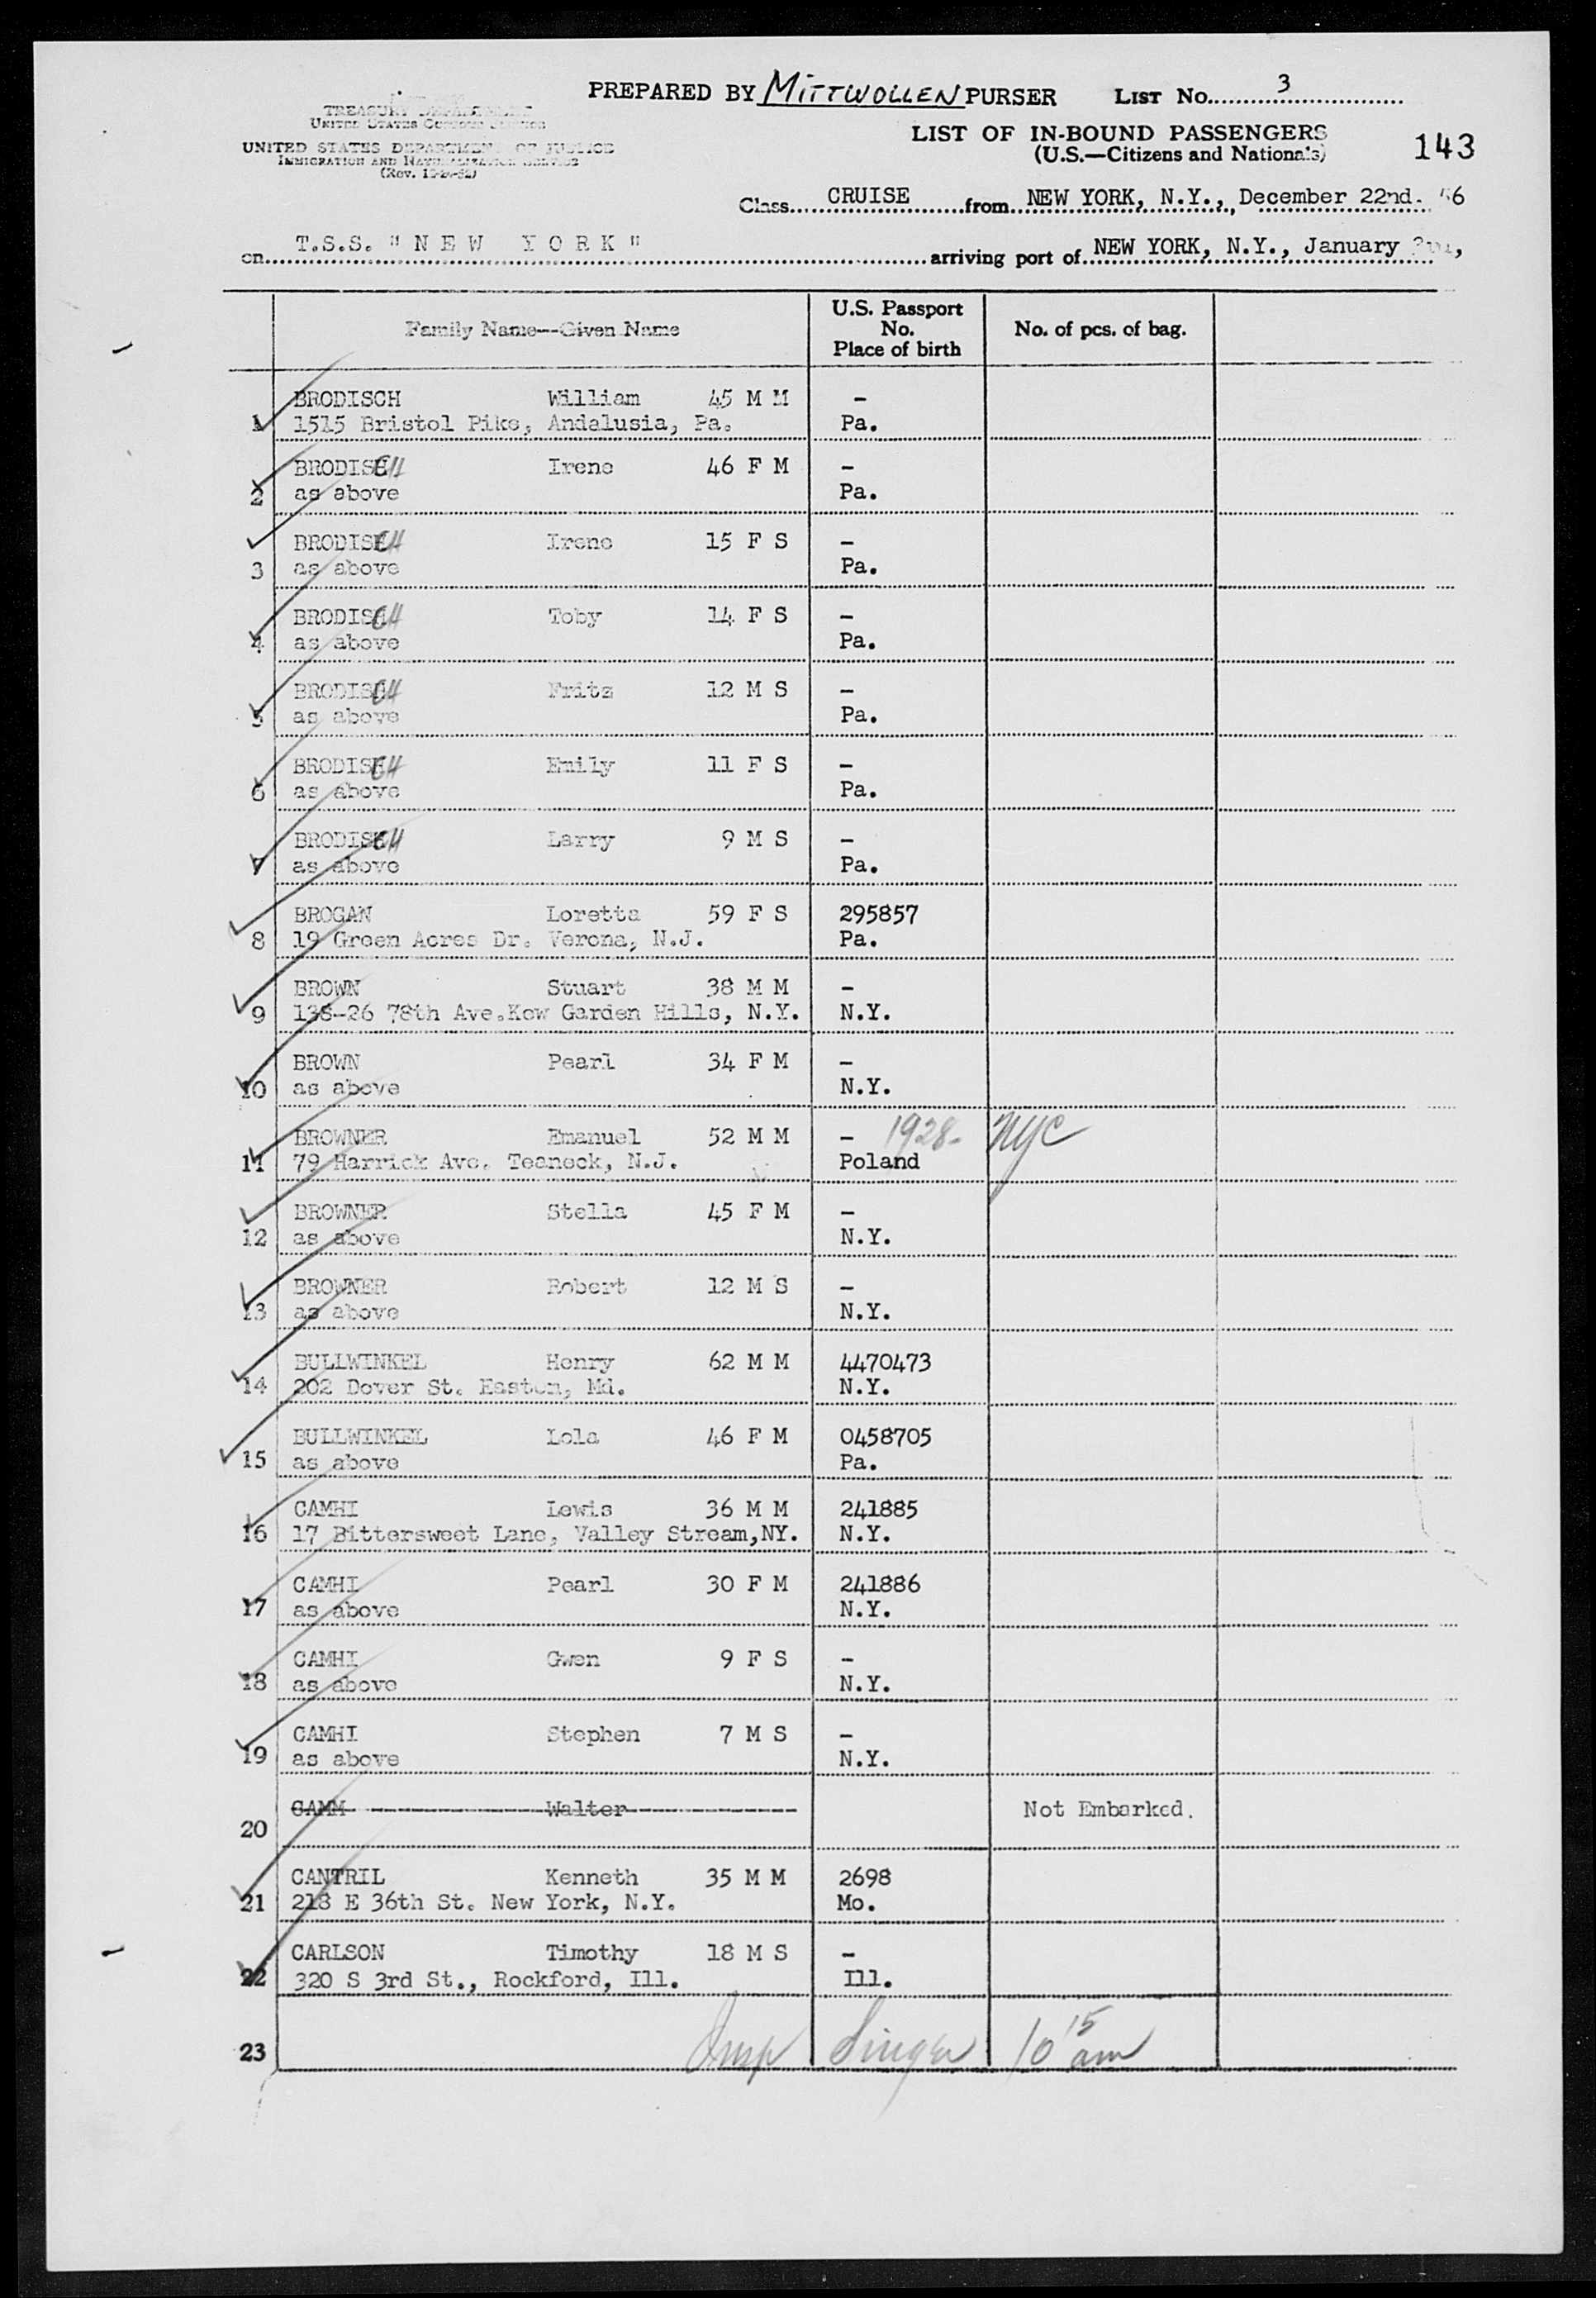 PREPARED BY MITTWOLLEN PURSER LIST No. 3
TREASURY DEPARTMENT
UNITED STATES CUSTOMS SERVICE
UNITED STATES DEPARTMENT OF JUSTICE
IMMIGRATION AND NATURALIZATION SERVICE
(Rev. 12-24-52)
LIST OF IN-BOUND PASSENGERS
(U.S.—Citizens and Nationals)
143
Class CRUISE from NEW YORK, N.Y., December 22nd. 56
on T.S.S. "NEW YORK" arriving port of NEW YORK, N.Y., January
Family Name—Given Name
U.S. Passport No. Place of birth
No. of pcs. of bag.
BRODISCH William 45 M M –
1 1515 Bristol Pike, Andalusia, Pa. Pa.
BRODISCH Irene 46 F M –
2 as above Pa.
BRODISCH Irene 15 F S –
3 as above Pa.
BRODISCH Toby 14 F S –
4 as above Pa.
BRODISCH Fritz 12 M S –
5 as above Pa.
BRODISCH Emily 11 F S –
6 as above Pa.
BRODISCH Larry 9 M S –
7 as above Pa.
BROGAN Loretta 59 F S 295857
8 19 Green Acres Dr. Verona, N.J. Pa.
BROWN Stuart 38 M M –
9 138-26 78th Ave.Kew Garden Hills, N.Y. N.Y.
BROWN Pearl 34 F M –
10 as above N.Y.
BROWNER Emanuel 52 M M – 1928- NYC
11 79 Harrick Ave. Teaneck, N.J. Poland
BROWNER Stella 45 F M –
12 as above N.Y.
BROWNER Robert 12 M S –
13 as above N.Y.
BULLWINKEL Henry 62 M M 4470473
14 202 Dover St. Easton, Md. N.Y.
BULLWINKEL Lola 46 F M 0458705
15 as above Pa.
CAMHI Lewis 36 M M 241885
16 17 Bittersweet Lane, Valley Stream,NY. N.Y.
CAMHI Pearl 30 F M 241886
17 as above N.Y.
CAMHI Gwen 9 F S –
18 as above N.Y.
CAMHI Stephen 7 M S –
19 as above N.Y.
CAMM Walter Not Embarked.
20
CANTRIL Kenneth 35 M M 2698
21 218 E 36th St. New York, N.Y. Mo.
CARLSON Timothy 18 M S –
22 320 S 3rd St., Rockford, Ill. Ill.
23 Insp Singer 10 15 am